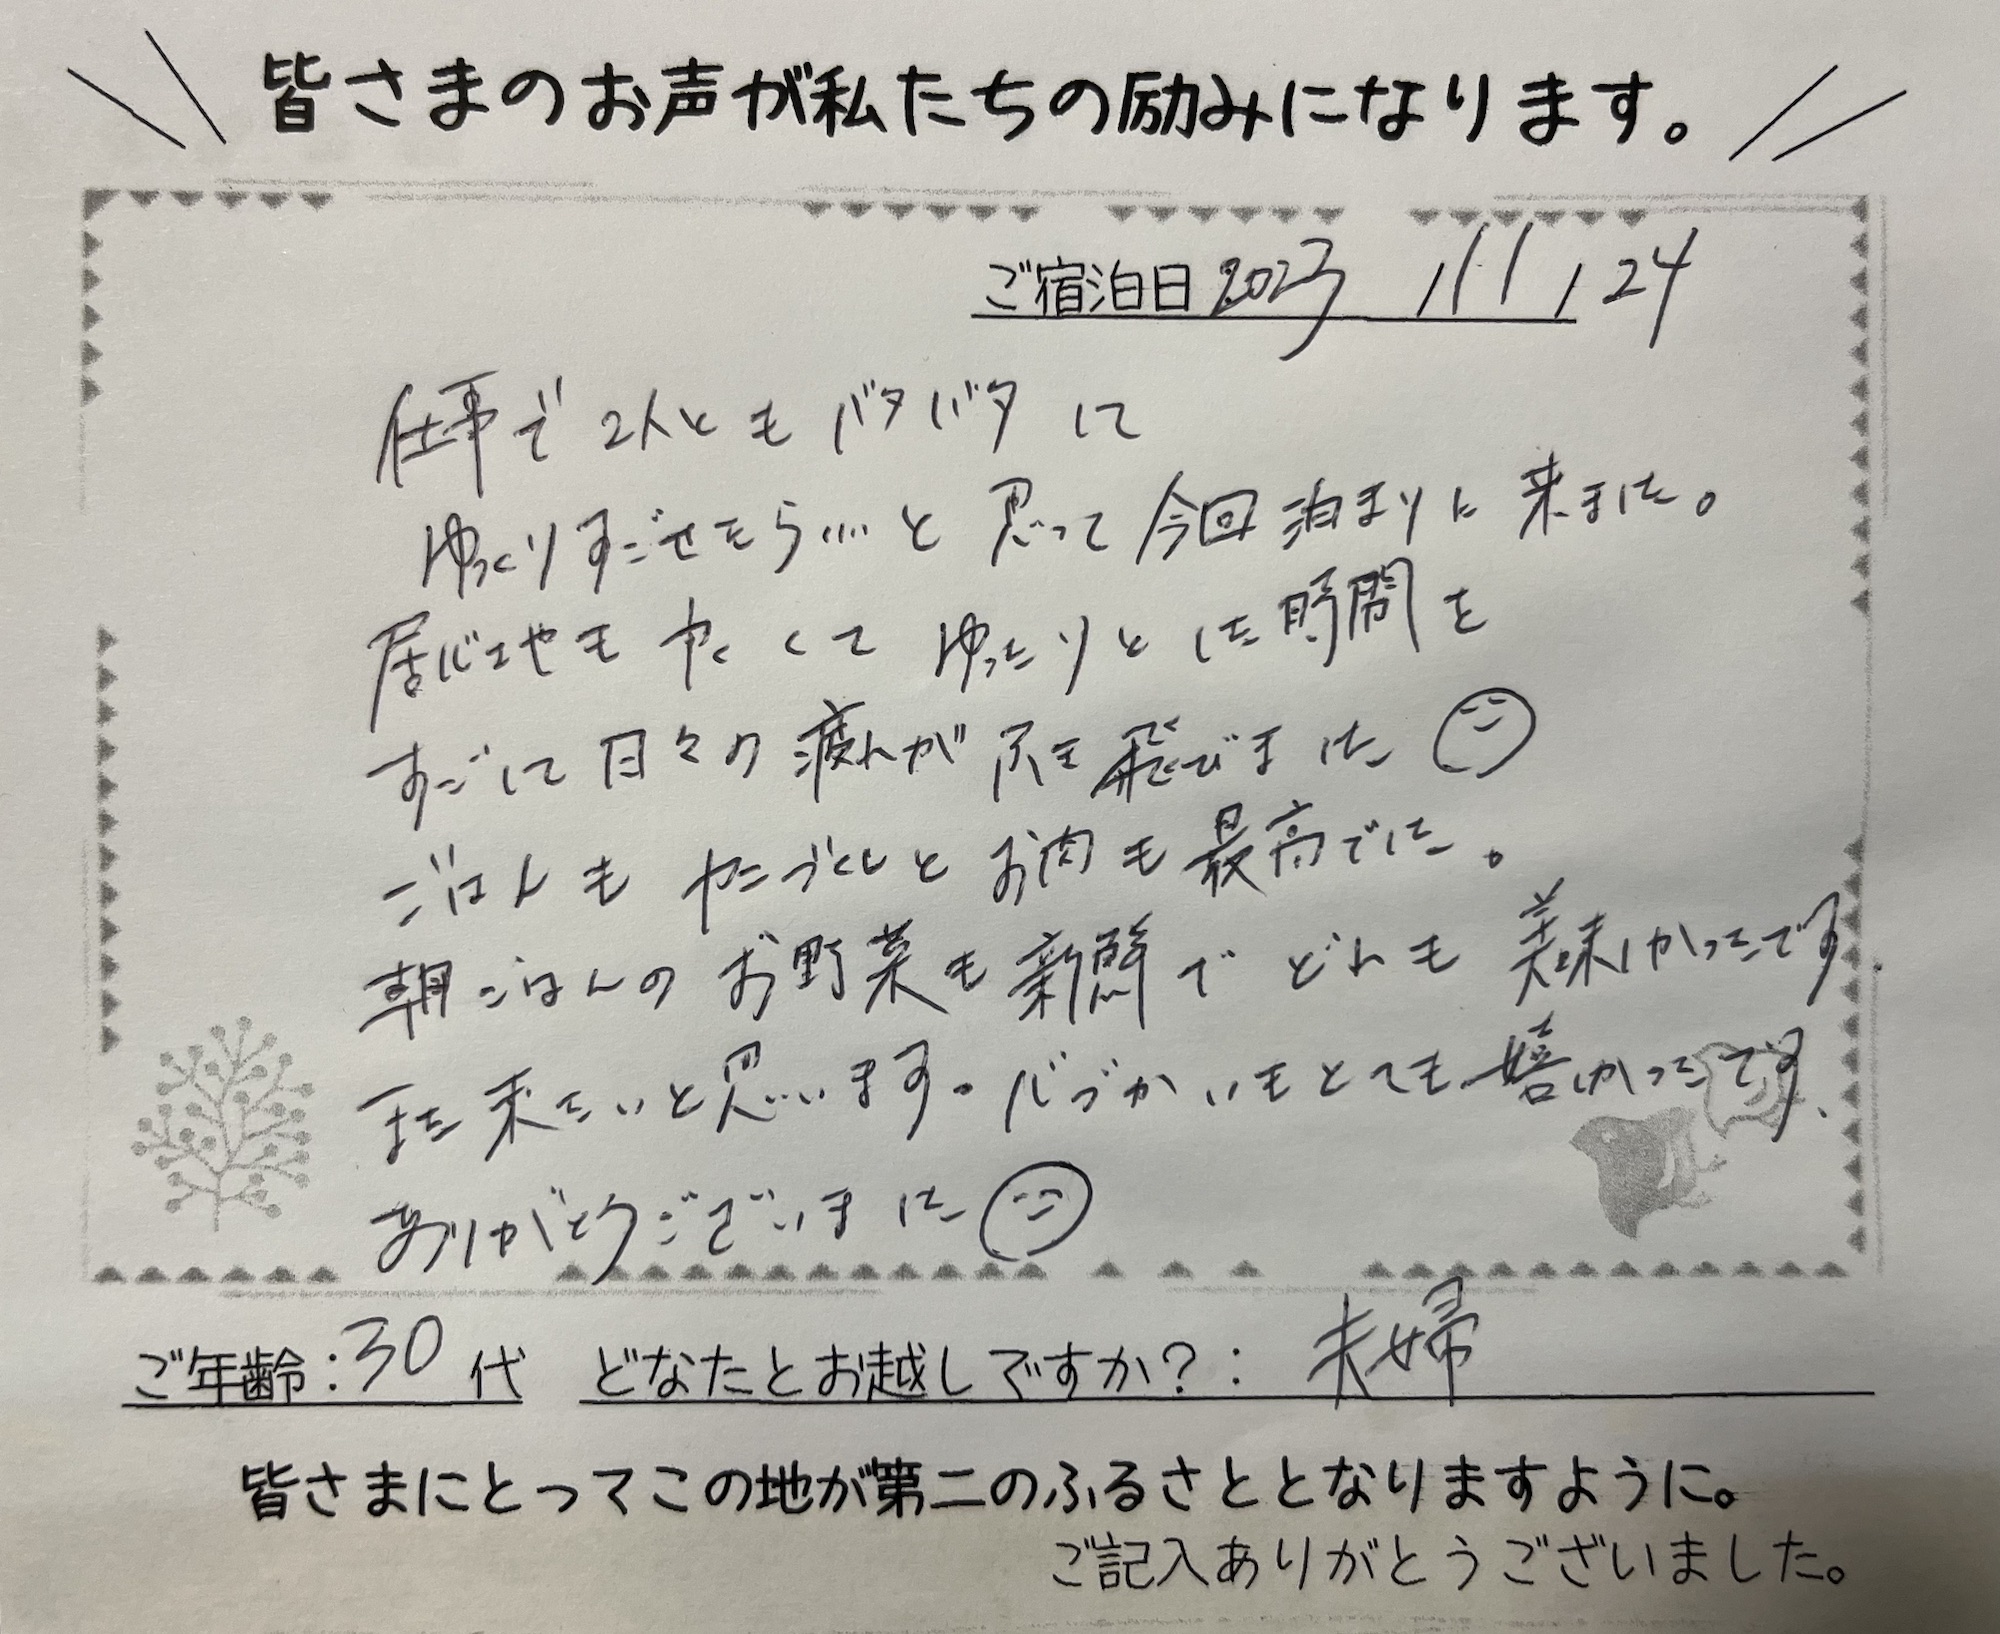 皆さまのお声が私たちの励みになります。
ご宿泊日 2023 / 11 / 24
仕事で2人ともバタバタに
ゆっくりすごせたら…と思って今回泊まりに来ました。
居心地も よくて ゆったりとした時間を
すごして日々の疲れが 飛びました
ごはんも かにづくしとお肉も最高でした。
朝ごはんのお野菜も新鮮でどれも美味しかったです.
また来たいと思います。心づかいもとても嬉しかったです.
ありがとうございました
ご年齢:30代 どなたとお越しですか?: 夫婦
皆さまにとってこの地が第二のふるさととなりますように。
ご記入ありがとうございました。